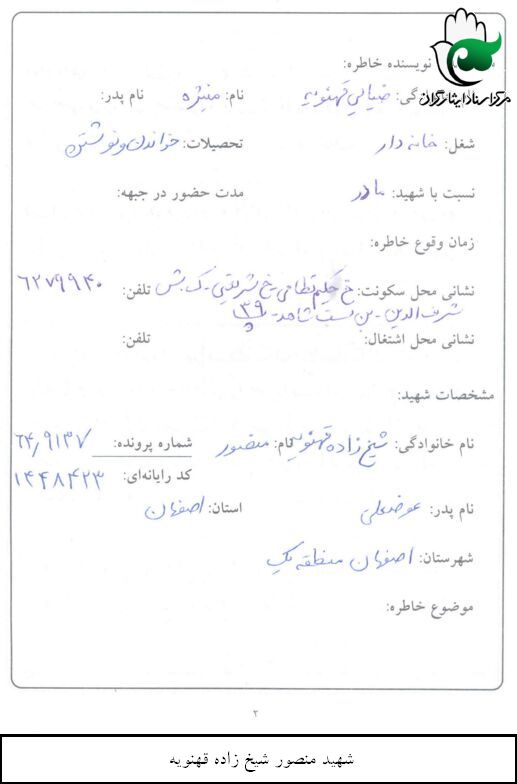 مرکز اسناد ایثارگران
نویسنده خاطره:
نام خانوادگی: ضیایی قهنویه نام: منیژه نام پدر:
شغل: خانه دار تحصیلات: خواندن و نوشتن
نسبت با شهید: مادر مدت حضور در جبهه:
زمان وقوع خاطره:
نشانی محل سکونت: خ حکیم نظامی - خ شریعتی - ک. ش تلفن: ۶۲۷۹۹۴۰
شرف الدین - بن بست شاهد - پ ۳۹
نشانی محل اشتغال: تلفن:
مشخصات شهید:
نام خانوادگی: شیخ زاده قهنویه نام: منصور شماره پرونده: ۶۴٫۹۱۳۷
کد رایانه‌ای: ۱۴۴۸۴۲۳
نام پدر: عوضعلی استان: اصفهان
شهرستان: اصفهان منطقه یک
موضوع خاطره:
۲
شهید منصور شیخ زاده قهنویه